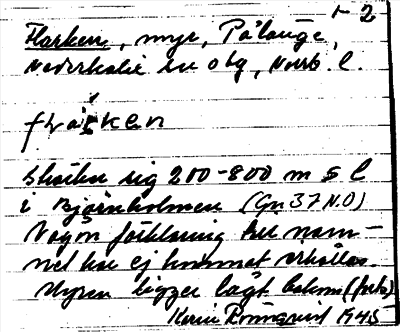 1-2
Flarken, myr, Pålänge,
Nederkalix sn o tg, Norrb. l.
flar̀ken
Sträcker sig 200-800 m S l
i Björnholmen (Gn 37 N.O)
Någon förklaring till nam-
net har ej kunnat erhållas.
Myren ligger lågt
Karin 1945